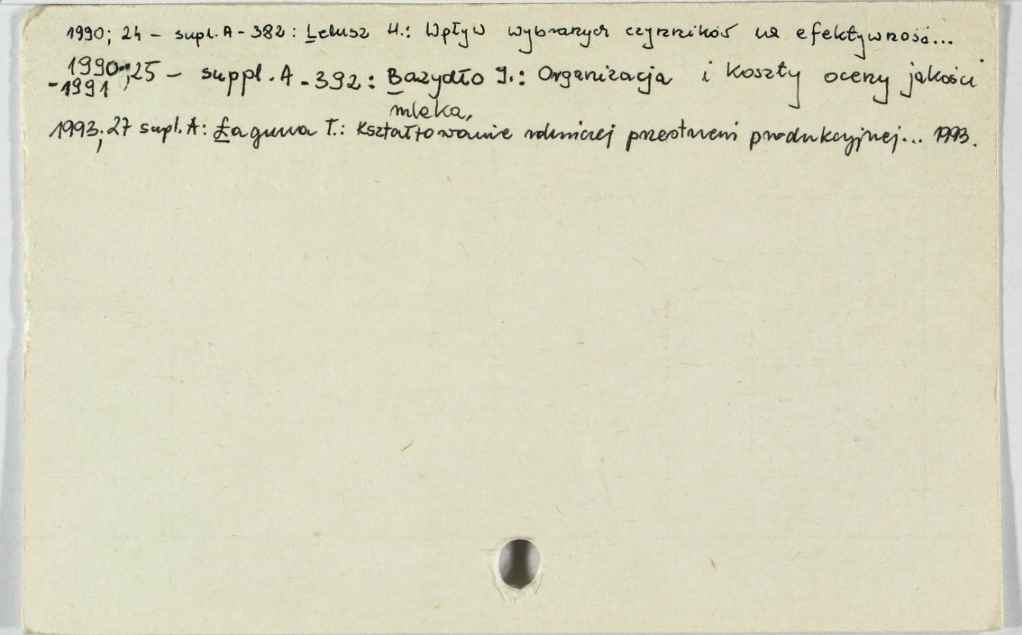 1990; 24 – supl. A - 382: Lelusz H.: Wpływ wybranych czynników na efektywność...
1990-;25 – suppl. A - 392: Bazydło J.: Organizacja i koszty oceny jakości
-1991
mleka,
1993; 27 supl. A: Łaguna T.: Kształtowanie rolniczej przestrzeni produkcyjnej... 1993.